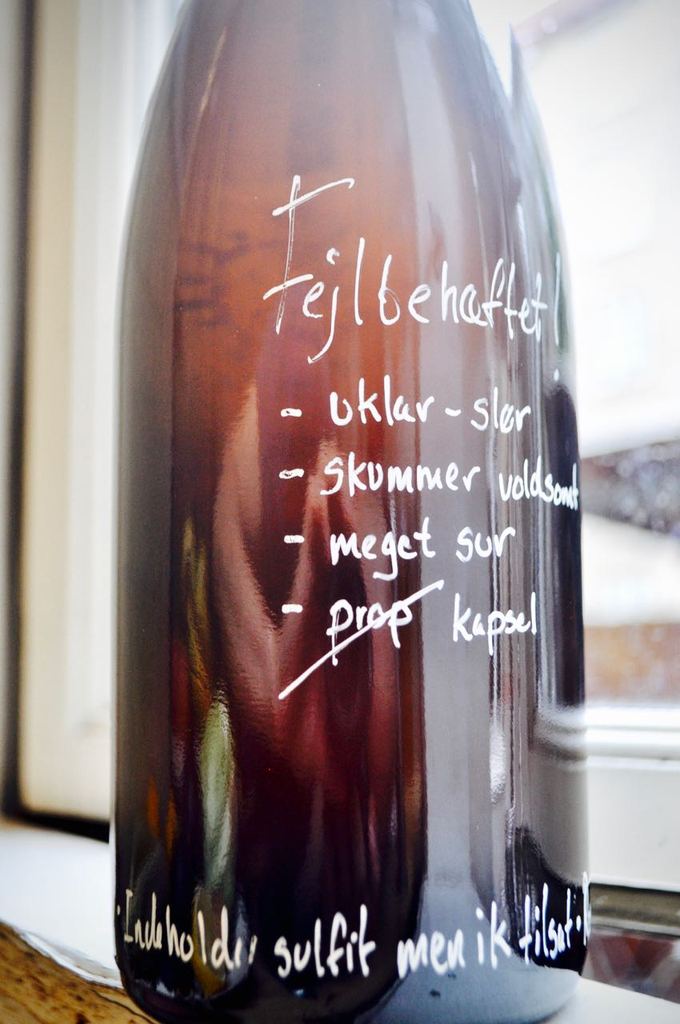 Fejlbehæftet!
- uklar - slør
- skummer voldsomt
- meget sur
- prop kapsel
· Indeholder sulfit men ik tilsat ·